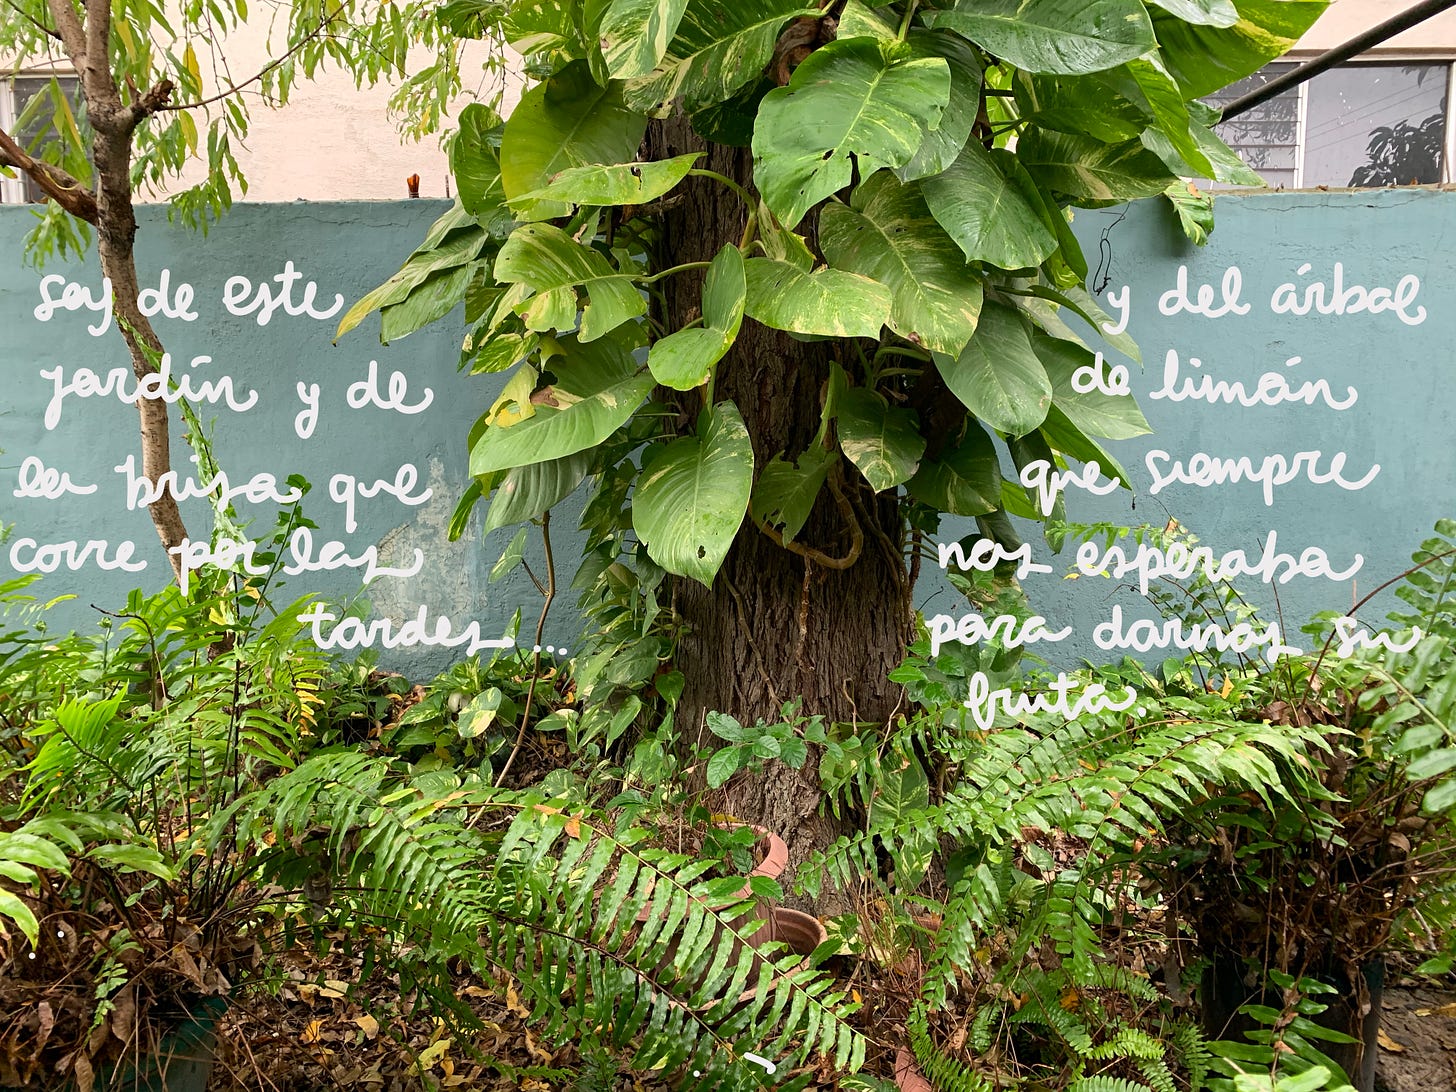 soy de este
jardín y de
la brisa que
corre por las
tardes...
y del árbol
de limón
que siempre
nos esperaba
para darnos su
fruta.